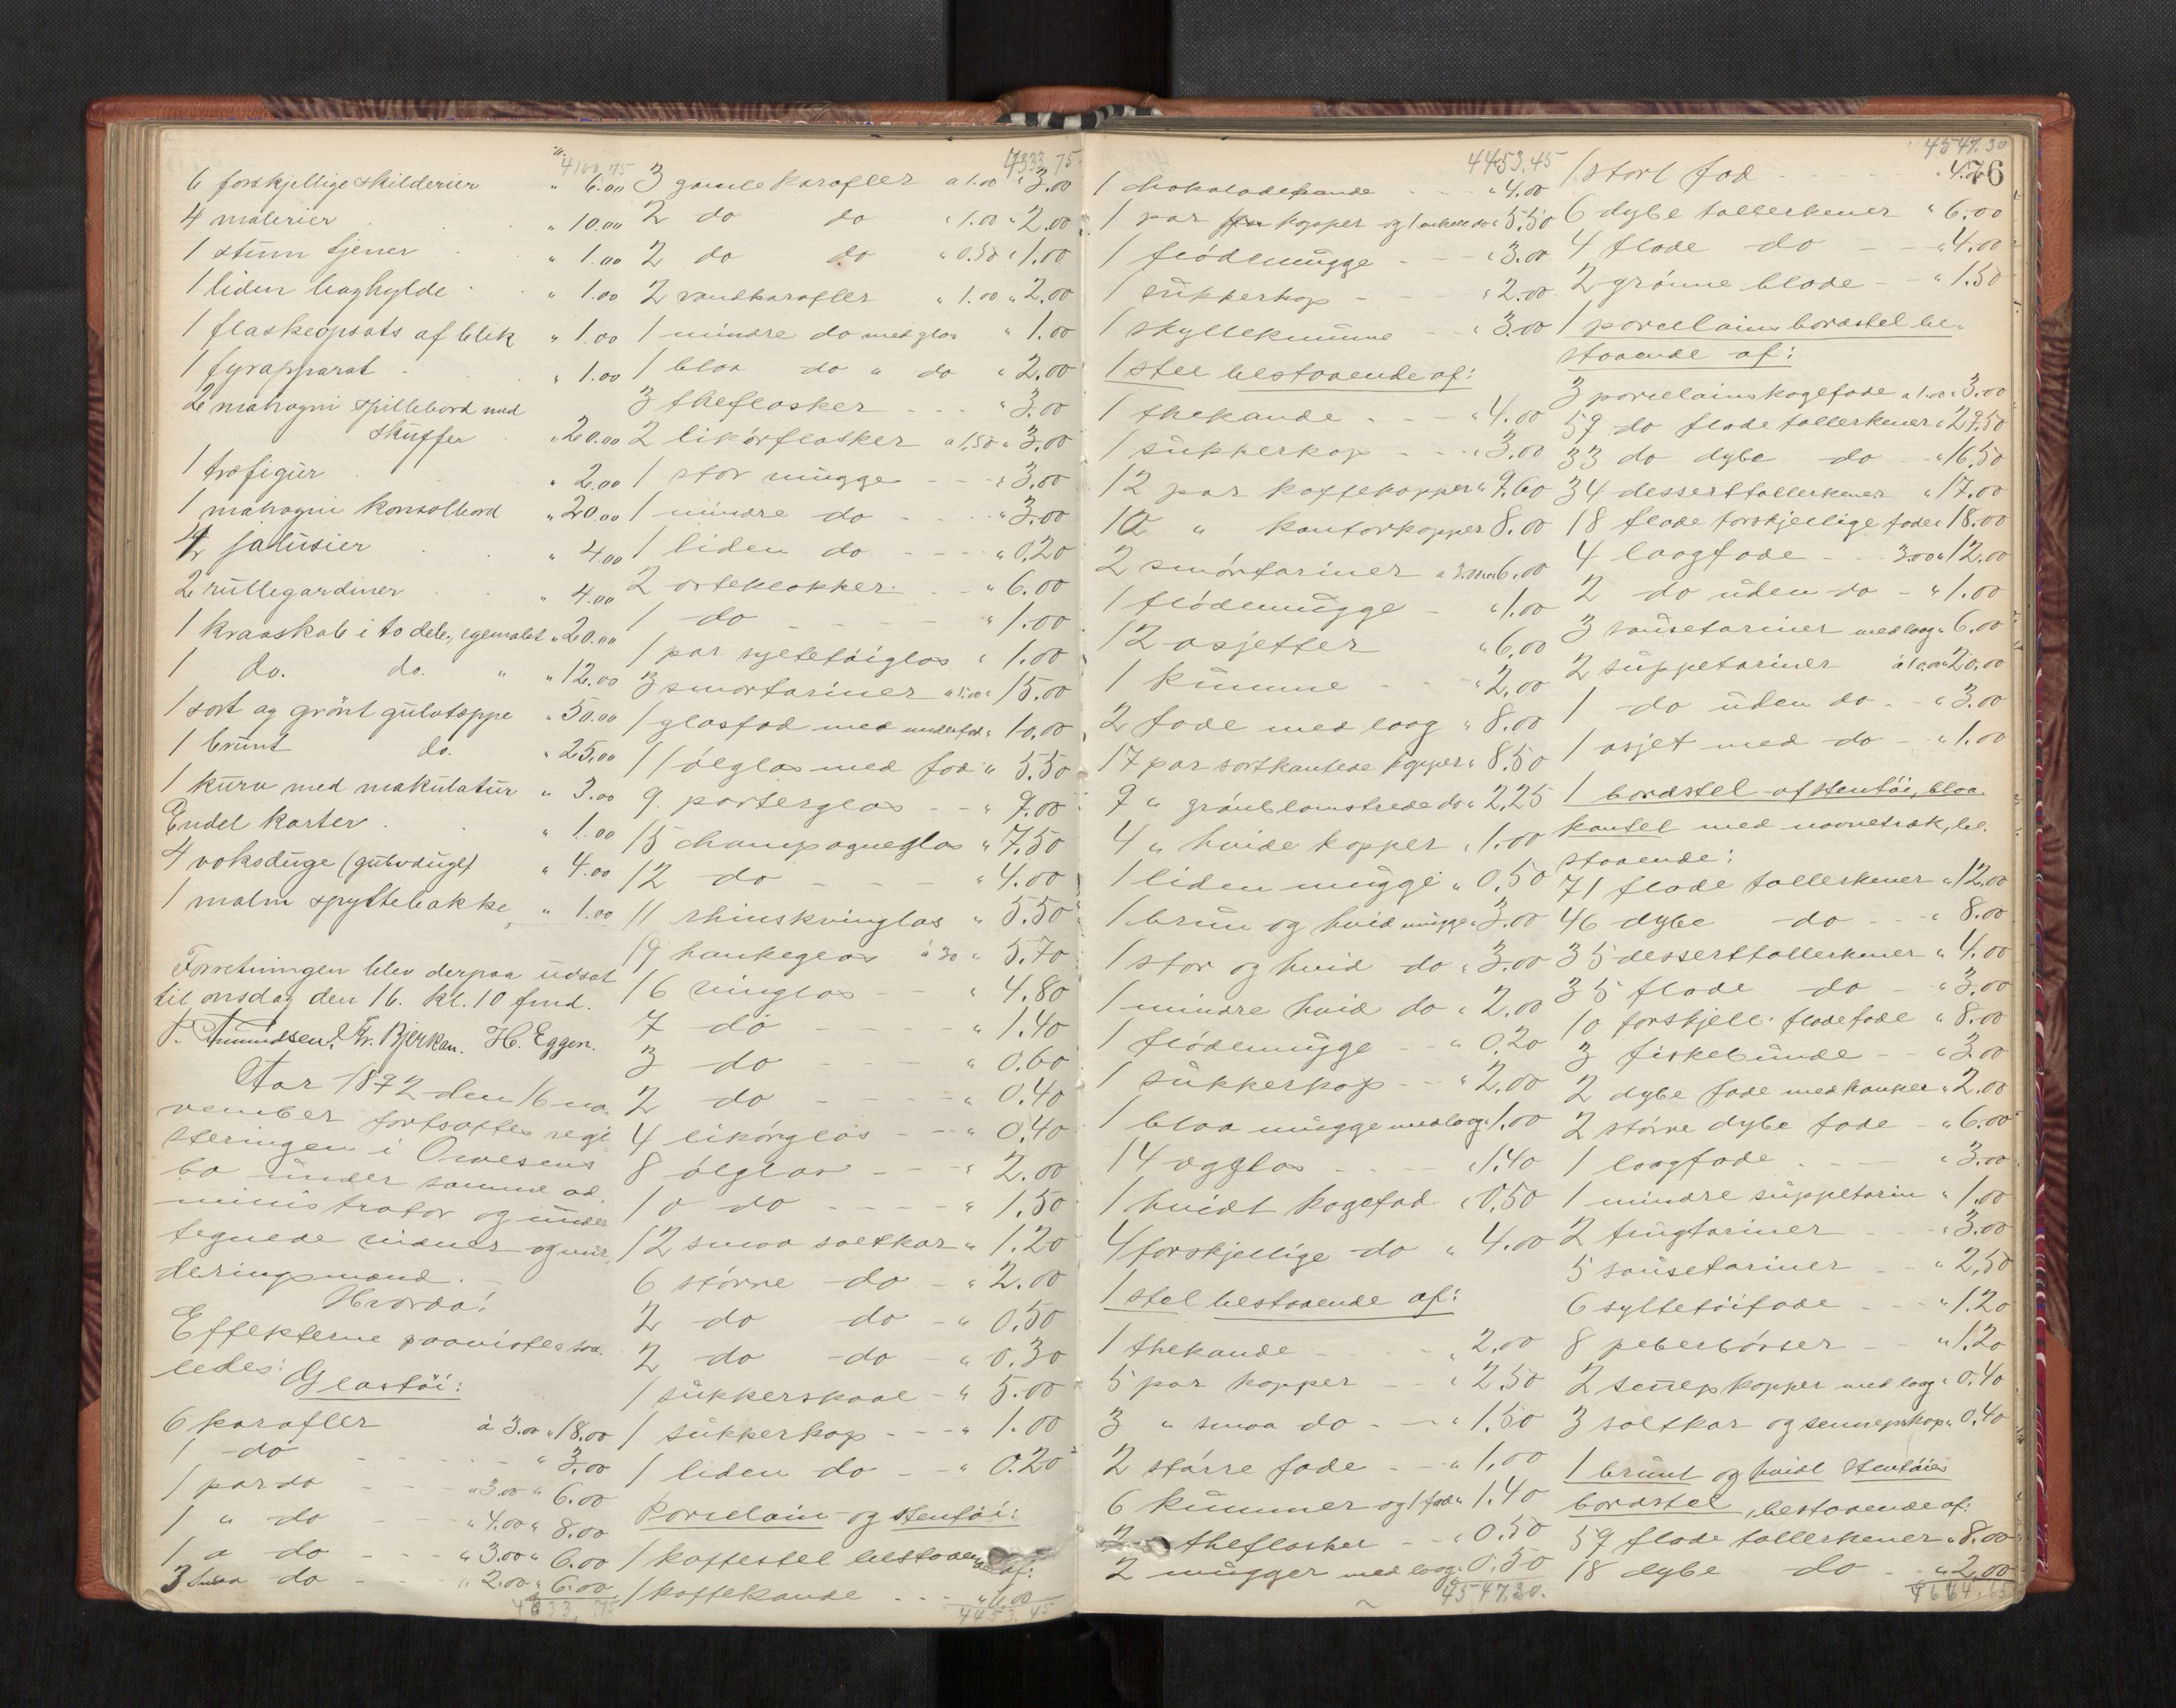 4160,75
6 forskjellige skilderier " 6.00
4 malerier " 10.00
1 stum tjener " 1.00
1 liden boghylde " 1.00
1 flaskeopsats af blik " 1.00
1 fyrapparat " 1.00
2 mahogni spillebord med
skuffer " 20.00
1 træfigur " 2.00
1 mahogni konsolbord " 20.00
4 jalusier " 4.00
2 rullegardiner " 4.00
1 kraaskab i to dele, egemalet " 20.00
1 do. do. " " 12.00
1 sort og grønt gulvtæppe " 50.00
1 brunt do. " 25,00
1 kurv med makulatur " 3.00
Endel karter " 1.00
4 voksduge (gulvduge) " 4.00
1 malm spyttebakke " 1.00
Forretningen blev derpaa udsat
til onsdag den 16. kl. 10 fmd.
Amundsen. Fr. Bjerkan. H. Eggen.
Aar 1892 den 16 no-
vember fortsattes regi
streringen i Owesens
bo under samme ad-
ministrator og under
tegnede vidner og vur
deringsmænd.
Hvorda!
Effekterne paavistes saa-
ledes:
Glastöi:
6 karafler à 3.00 " 18.00
1 do " 3.00
1 par do " 3.00 " 6.00
1 " do " 4.00 " 8.00
1 " do " 3.00 " 6.00
3 smaa do " 2.00 " 6.00
4333,75
4333,75
3 gamle karafler a 1.00 " 3.00
2 do do " 1.00 " 2.00
2 do do " 0.50 " 1.00
2 vandkarafler " 1.00 " 2.00
1 mindre do med glas " 1.00
1 blaa do " do " 2.00
3 theflasker " 3.00
2 likörflasker a 1,50 " 3.00
1 stor mugge " 3.00
1 mindre do " 3.00
1 liden do " 0,20
2 osteklokker " 6.00
1 do " 1.00
1 par syltetöiglas " 1.00
3 smörtariner a 5.00 " 15.00
1 glasfad med underfad " 10.00
11 ölglas med fod " 5.50
9 porterglas " 9.00
15 champagneglas " 7.50
12 do " 4.00
11 rhinskvinglas " 5.50
19 hankeglas à 30 " 5.70
16 vinglas " 4.80
7 do " 1.40
3 do " 0.60
2 do " 0.40
4 likörglas " 0.40
8 ölglas " 2.00
10 do " 1.50
12 smaa saltkar " 1.20
6 större do " 2.00
2 do do " 0.50
2 do do " 0.30
1 sukkerskaal " 5.00
1 sukkerkop " 1.00
1 liden do " 0.20
Porcelain og stentöi:
1 kaffestel bestaaende af:
1 kaffekande " 6.00
4453,45
4453,45
1 chokoladekande " 4.00
1 par kopper og 1 do " 5.50
1 flödemugge " 3.00
1 sukkerkop " 2.00
1 skyllekumme " 3.00
1 stel bestaaende af:
1 thekande " 4.00
1 sukkerkop " 3.00
12 par kaffekopper " 9.60
10 " kantorkopper 8.00
2 smörtariner a 3.00 " 6.00
1 flödemugge " 1.00
12 asjetter " 6.00
1 kumme " 2.00
2 fade med laag " 8.00
17 par sortkantede kopper " 8.50
9 " grönblomstrede do " 2.25
4 " hvide kopper " 1.00
1 liden mugge " 0.50
1 brun og hvid mugge " 3.00
1 stor og hvid do " 3.00
1 mindre hvid do " 2.00
1 flödemugge " 0.20
1 sukkerkop " 2.00
1 blaa mugge med laag " 1.00
14 ægglas " 1.40
1 hvidt kagefad " 0.50
4 forskjellige do " 4.00
1 stel bestaaende af:
1 thekande " 2.00
5 par kopper " 2.50
3 " smaa do " 1.50
2 större fade " 1.00
6 kummer og 1 fad " 1.40
2 theflasker " 0.50
2 mugger med laag " 0.50
4547,30.
4547.30
76
1 stort fad
6 dybe tallerkener " 6.00
4 flade do " 4.00
2 grönne blade " 1.50
1 porcelains bordstel be-
staaende af:
3 porcelainskagefade a 1.00 " 3.00
59 do flade tallerkener " 29.50
33 do dybe do " 16.50
34 desserttallerkener " 17.00
18 flade forskjellige fade " 18.00
4 laagfade 3.00 " 12.00
2 do uden do " 1.00
3 sausetariner med laag " 6.00
2 suppetariner à 10.00 " 20.00
1 do uden do " 3.00
1 asjet med do " 1.00
1 bordstel af stentöi, blaa-
kantet med navnetræk, be-
staaende:
71 flade tallerkener " 12.00
46 dybe do " 8.00
35 desserttallerkener " 4.00
35 flade do " 3.00
10 forskjell. flade fade " 8.00
3 fiskebunde " 3.00
2 dybe fade med hanker " 2.00
2 större dybe fade " 6.00
1 laagfade " 3.00
1 mindre suppetarin " 1.00
2 frugtariner " 3.00
5 sausetariner " 2,50
6 syltetöifade " 1.20
8 peberbösser " 1.20
2 senepskopper med laag " 0.40
3 saltkar og sennepskop " 0.40
1 brunt og hvidt stentöies
bordstel, bestaaende af:
59 flade tallerkener " 8.00
18 dybe do " 2.00